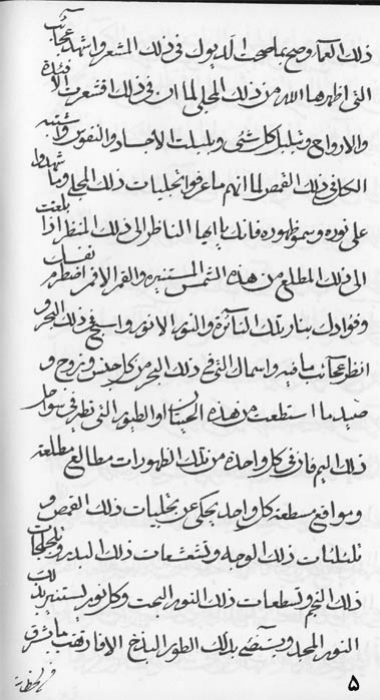 ذلك العماء وصح بما صحت الديوك في ذلك المشعر واشهد عجائب
التي اظهرها الله من ذلك المجلي لما ان في ذلك اقشعرت الافئدة
والارواح وتبلبل كل شئ وبلبلت الاجساد والنفوس واشتبه
الكل في ذلك القمص لما انهم ما عرفوا تجليات ذلك المجلي وما شهدوا
على نوره وسمو ظهوره فانك يا ايها الناظر الى ذلك المنظر اذا بلغت
الى ذلك المطلع من هذه الشمس المستنيره والقمر الاقمر اضطرم نفسك
وفوادك بنار تلك النائرة والنور الانور واسبح في ذلك البحر و
انظر عجائب ما فيه واسماك التي في ذلك البحر من كل جنس وزوج و
صيد ما استطعت من هذه الحيتان او الطيور التي تطير في سواحل
ذلك اليم فان في كل واحدة من تلك الظهورات مطالع مطلعة
ومواقع مسطعة كل واحد يحكي عن تجليات ذلك القمص و
تلئلئات ذلك الوجه وتشعشعات ذلك البدر وتلجلجات
ذلك النجم وتسطعات ذلك النور البحت وكل نور يستنير بذلك
النور المجلل ويستضئ بذلك الطور الباذخ
في لحظة
۵